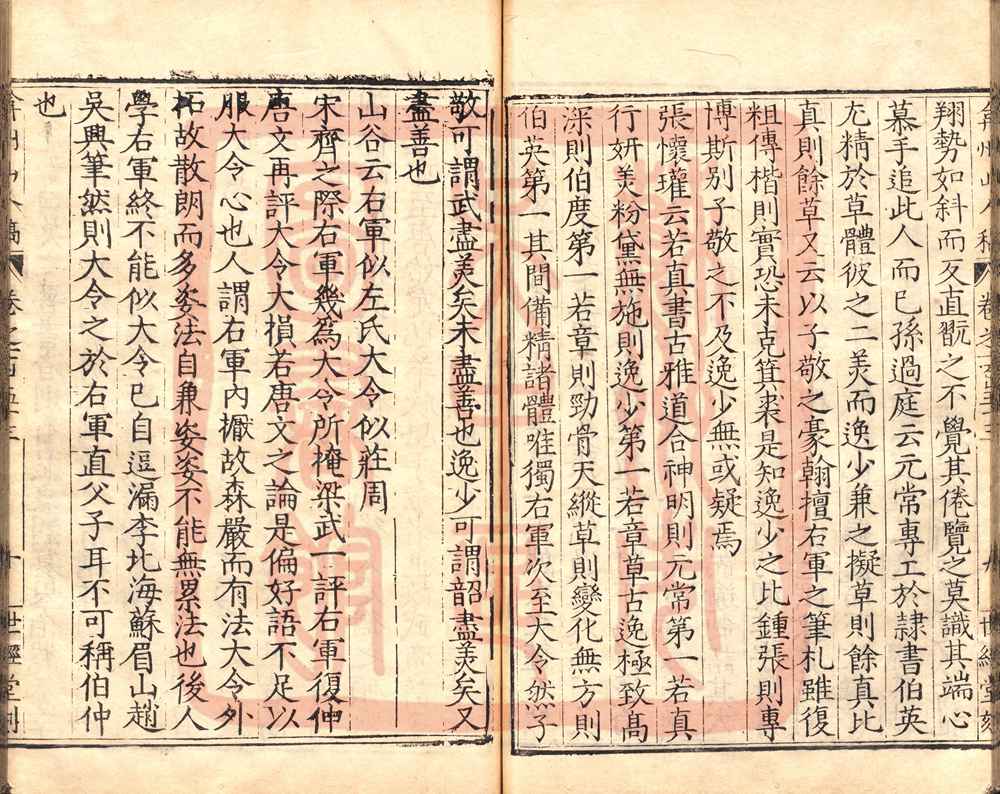 弇州山人稿 卷之一百五十三 九 世經堂刻
翔勢如斜而反直翫之不覺其倦覽之莫識其端心
慕手追此人而已孫過庭云元常專工於隸書伯英
尤精於草體彼之二羙而逸少兼之擬草則餘真比
真則餘草又云以子敬之豪翰擅右軍之筆札雖復
粗傳楷則實恐未克箕裘是知逸少之比鍾張則專
博斯别子敬之不及逸少無或疑焉
張懷瓘云若真書古雅道合神明則元常第一若真
行妍羙粉黛無施則逸少第一若章草古逸極致髙
深則伯度第一若章則勁骨天縱草則變化無方則
伯英第一其間備精諸體唯獨右軍次至大令然子
敬可謂武盡羙矣未盡善也逸少可謂韶盡羙矣又
盡善也
山谷云右軍似左氏大令似莊周
宋齊之際右軍幾為大令所掩梁武一評右軍復伸
唐文再評大令大損若唐文之論是偏好語不足以
服大令心也人謂右軍内擫故森嚴而有法大令外
拓故散朗而多姿法自兼姿姿不能無累法也後人
學右軍終不能似大令已自逗漏李北海蘇眉山趙
吳興筆然則大令之於右軍直父子耳不可稱伯仲
也
弇州山人稿 卷之一百五十三 十 世經堂刻